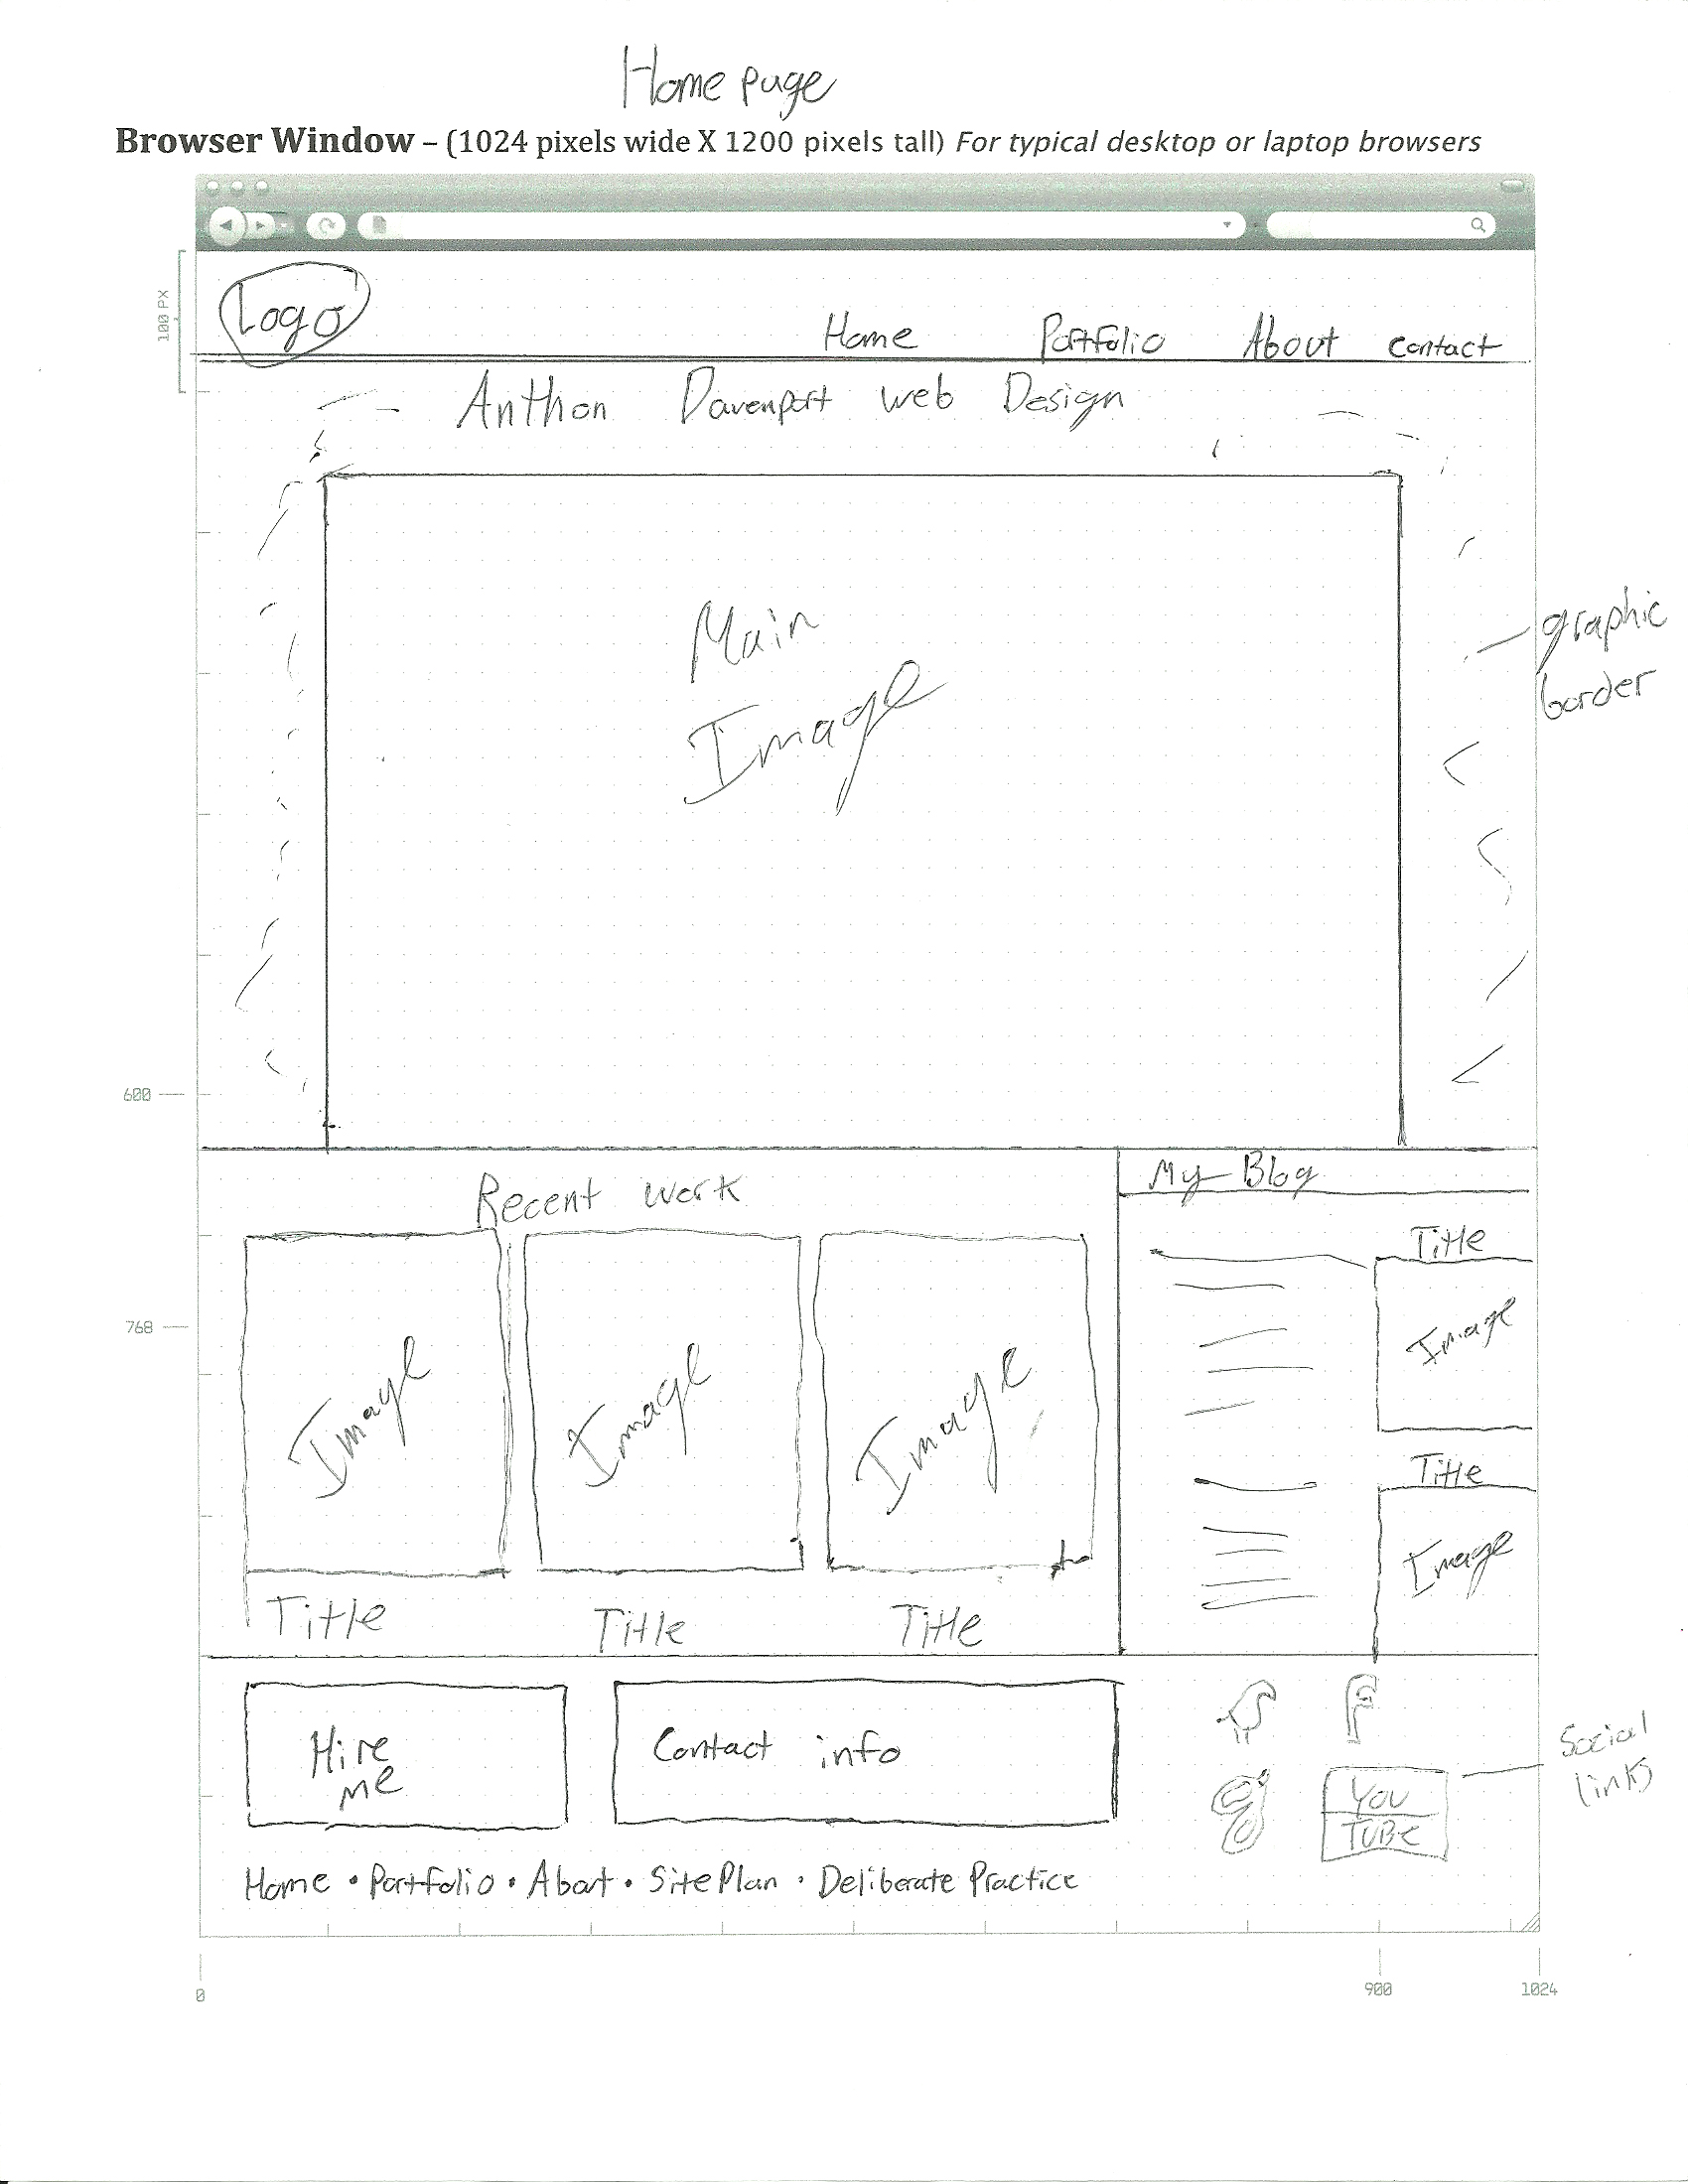 Home page
Browser Window – (1024 pixels wide X 1200 pixels tall) For typical desktop or laptop browsers
100 PX
Logo
Home Portfolio About contact
Anthon Davenport web Design
Main
Image
graphic
border
600
Recent work
My Blog
Title
Image
768
Image Image Image
Title
Image
Title Title Title
Hire
me
Contact info
Social
links
You
TUBE
Home • Portfolio • About • Site Plan • Deliberate Practice
0 900 1024